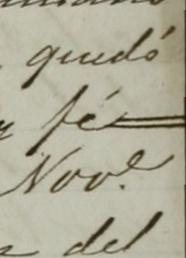 quedó
fé
Nov.e
del